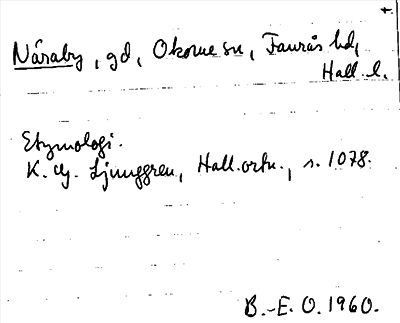 Näraby, gd, Okome sn, Faurås hd,
Hall. l.
Etymologi.
K. G. Ljunggren, Hall. ortn., s. 1078.
B.-E. O. 1960.